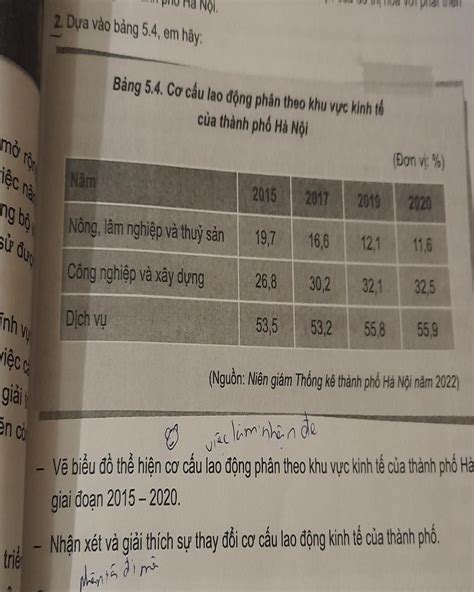 Hà Nội.
2. Dựa vào bảng 5.4, em hãy:
Bảng 5.4. Cơ cấu lao động phân theo khu vực kinh tế
của thành phố Hà Nội
(Đơn vị: %)
Năm 2015 2017 2019 2020
Nông, lâm nghiệp và thuỷ sản 19,7 16,6 12,1 11,6
Công nghiệp và xây dựng 26,8 30,2 32,1 32,5
Dịch vụ 53,5 53,2 55,8 55,9
(Nguồn: Niên giám Thống kê thành phố Hà Nội năm 2022)
việc làm nhận đề
– Vẽ biểu đồ thể hiện cơ cấu lao động phân theo khu vực kinh tế của thành phố Hà
giai đoạn 2015 – 2020.
– Nhận xét và giải thích sự thay đổi cơ cấu lao động kinh tế của thành phố.